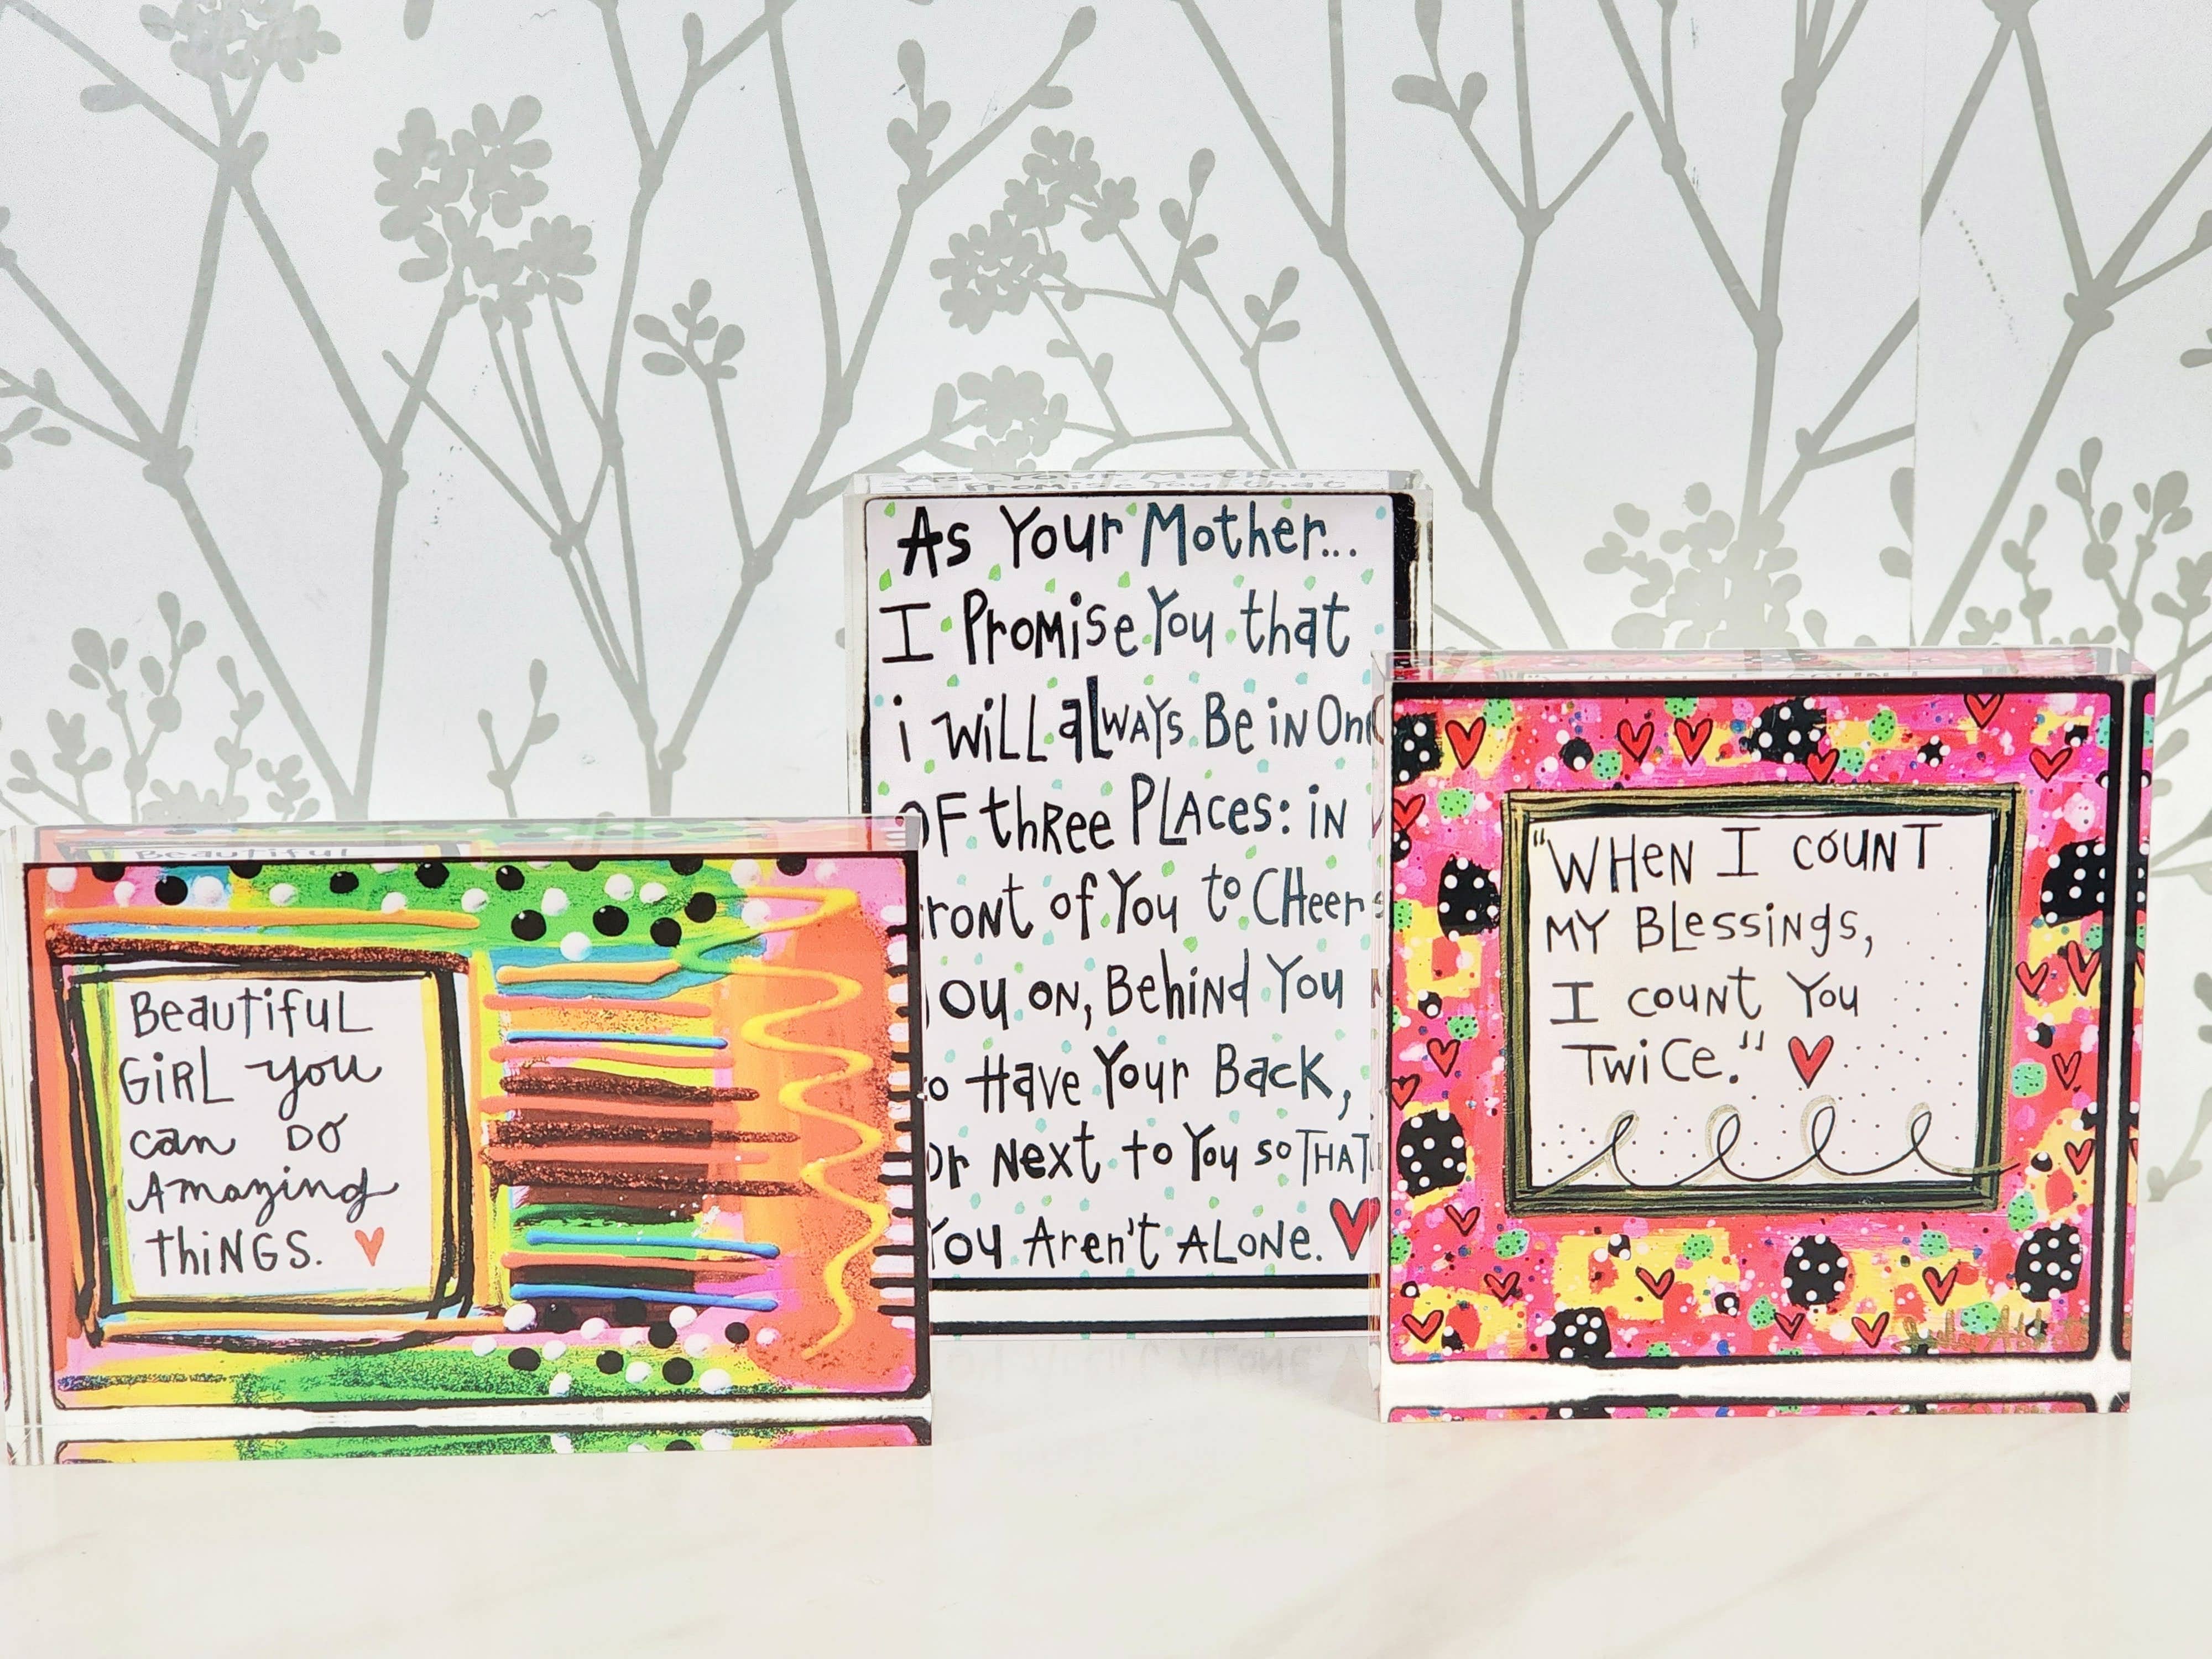 Beautiful
GiRL you
can DO
Amazing
thiNGS.
As Your Mother...
I PromisE You that
i WiLL alWAYs Be iN One
OF thRee PLAces: iN
Front of You to CHeer
You oN, BehiNd You
to Have Your Back,
Or Next to You so THAT
You Aren't ALoNe.
"WHeN I couNT
MY BLessiNgs,
I couNt You
TwiCe."